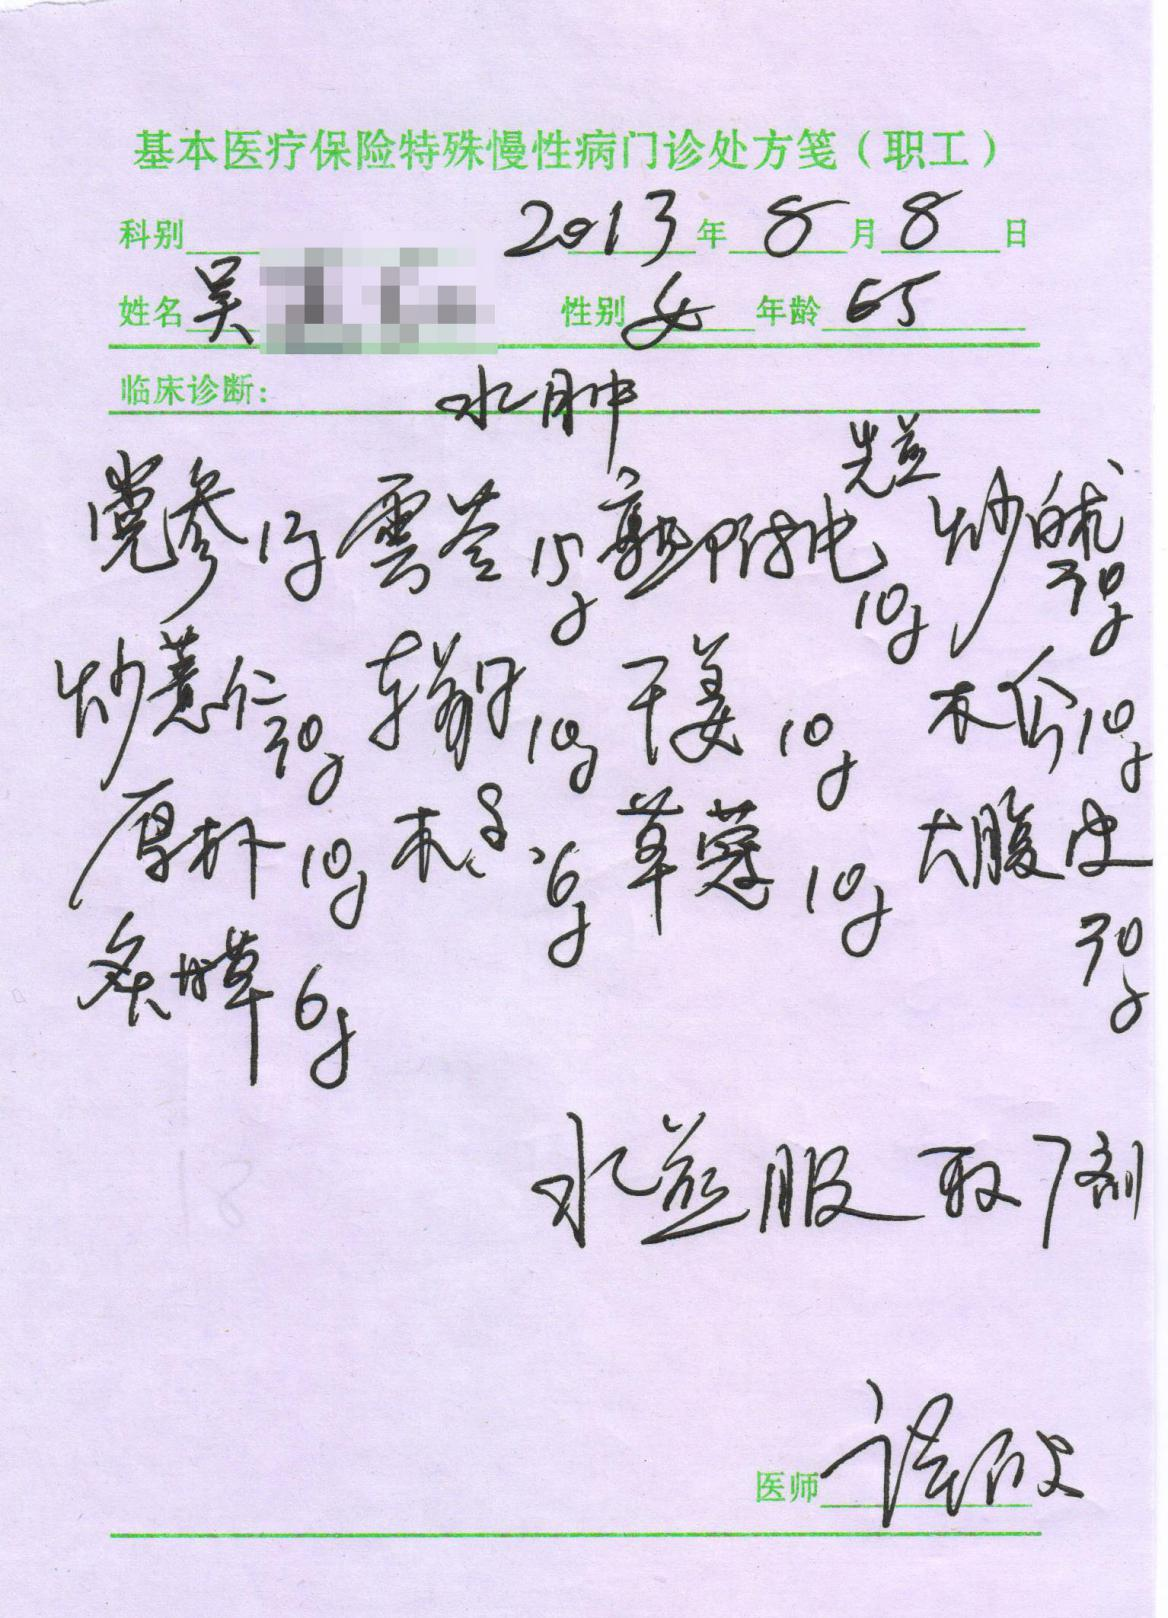 基本医疗保险特殊慢性病门诊处方笺（职工）
科别 2013年8月8日
姓名 吴 性别 女 年龄 65
临床诊断： 水肿
先煎
党参 雲苓 15g 熟附片 10g 炒白术 30g
炒薏仁 30g 车前子 10g 干姜 10g 木瓜 10g
厚朴 10g 木香 6g 草蔻 10g 大腹皮 30g
炙甘草 6g
水煎服 取7剂
医师